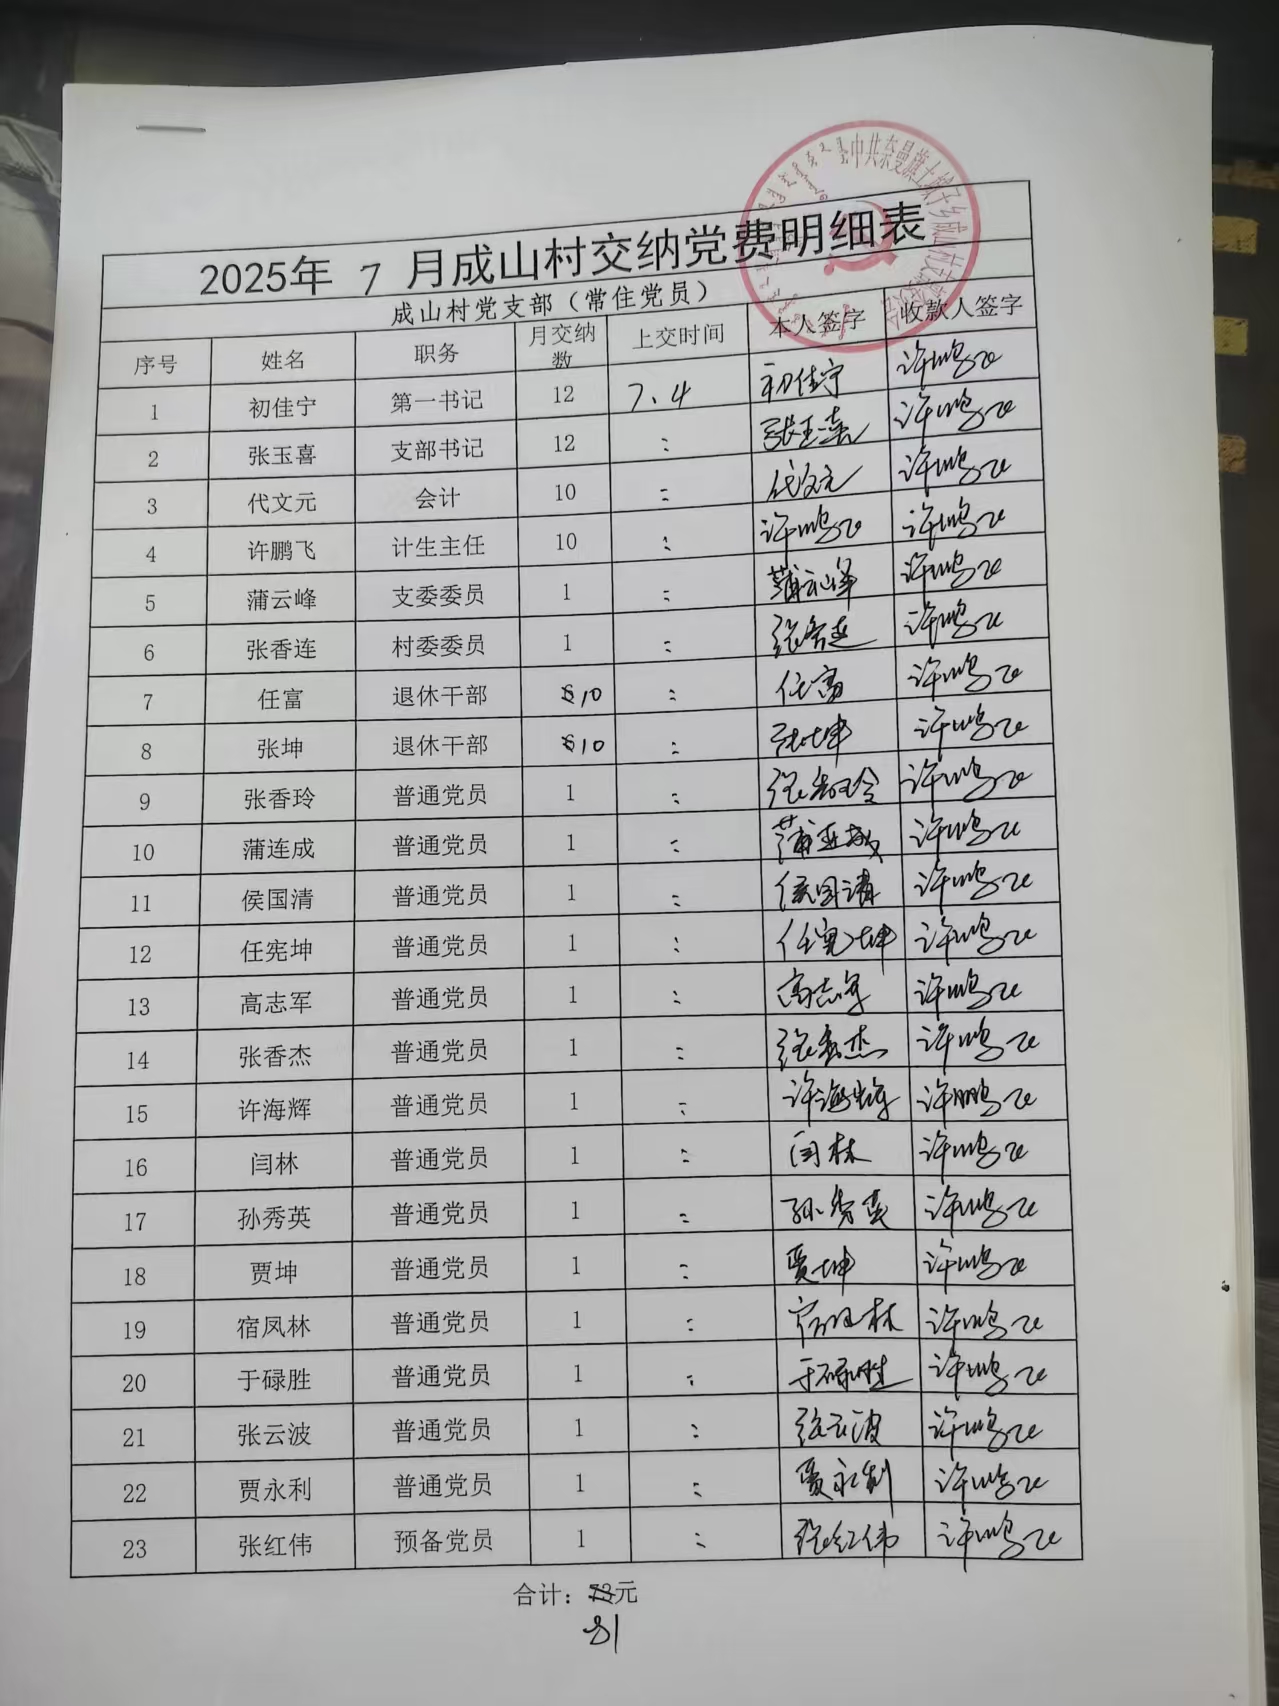 中共奈曼旗土城子乡成山村支部委员会
2025年 7 月成山村交纳党费明细表
成山村党支部（常住党员）
序号 姓名 职务 月交纳数 上交时间 本人签字 收款人签字
1 初佳宁 第一书记 12 7.4 初佳宁 许鹏飞
2 张玉喜 支部书记 12 〃 张玉喜 许鹏飞
3 代文元 会计 10 〃 代文元 许鹏飞
4 许鹏飞 计生主任 10 〃 许鹏飞 许鹏飞
5 蒲云峰 支委委员 1 〃 蒲云峰 许鹏飞
6 张香连 村委委员 1 〃 张香连 许鹏飞
7 任富 退休干部 10 〃 任富 许鹏飞
8 张坤 退休干部 10 〃 张坤 许鹏飞
9 张香玲 普通党员 1 〃 张香玲 许鹏飞
10 蒲连成 普通党员 1 〃 蒲连成 许鹏飞
11 侯国清 普通党员 1 〃 侯国清 许鹏飞
12 任宪坤 普通党员 1 〃 任宪坤 许鹏飞
13 高志军 普通党员 1 〃 高志军 许鹏飞
14 张香杰 普通党员 1 〃 张香杰 许鹏飞
15 许海辉 普通党员 1 〃 许海辉 许鹏飞
16 闫林 普通党员 1 〃 闫林 许鹏飞
17 孙秀英 普通党员 1 〃 孙秀英 许鹏飞
18 贾坤 普通党员 1 〃 贾坤 许鹏飞
19 宿凤林 普通党员 1 〃 宿凤林 许鹏飞
20 于碌胜 普通党员 1 〃 于碌胜 许鹏飞
21 张云波 普通党员 1 〃 张云波 许鹏飞
22 贾永利 普通党员 1 〃 贾永利 许鹏飞
23 张红伟 预备党员 1 〃 张红伟 许鹏飞
合计：元
81